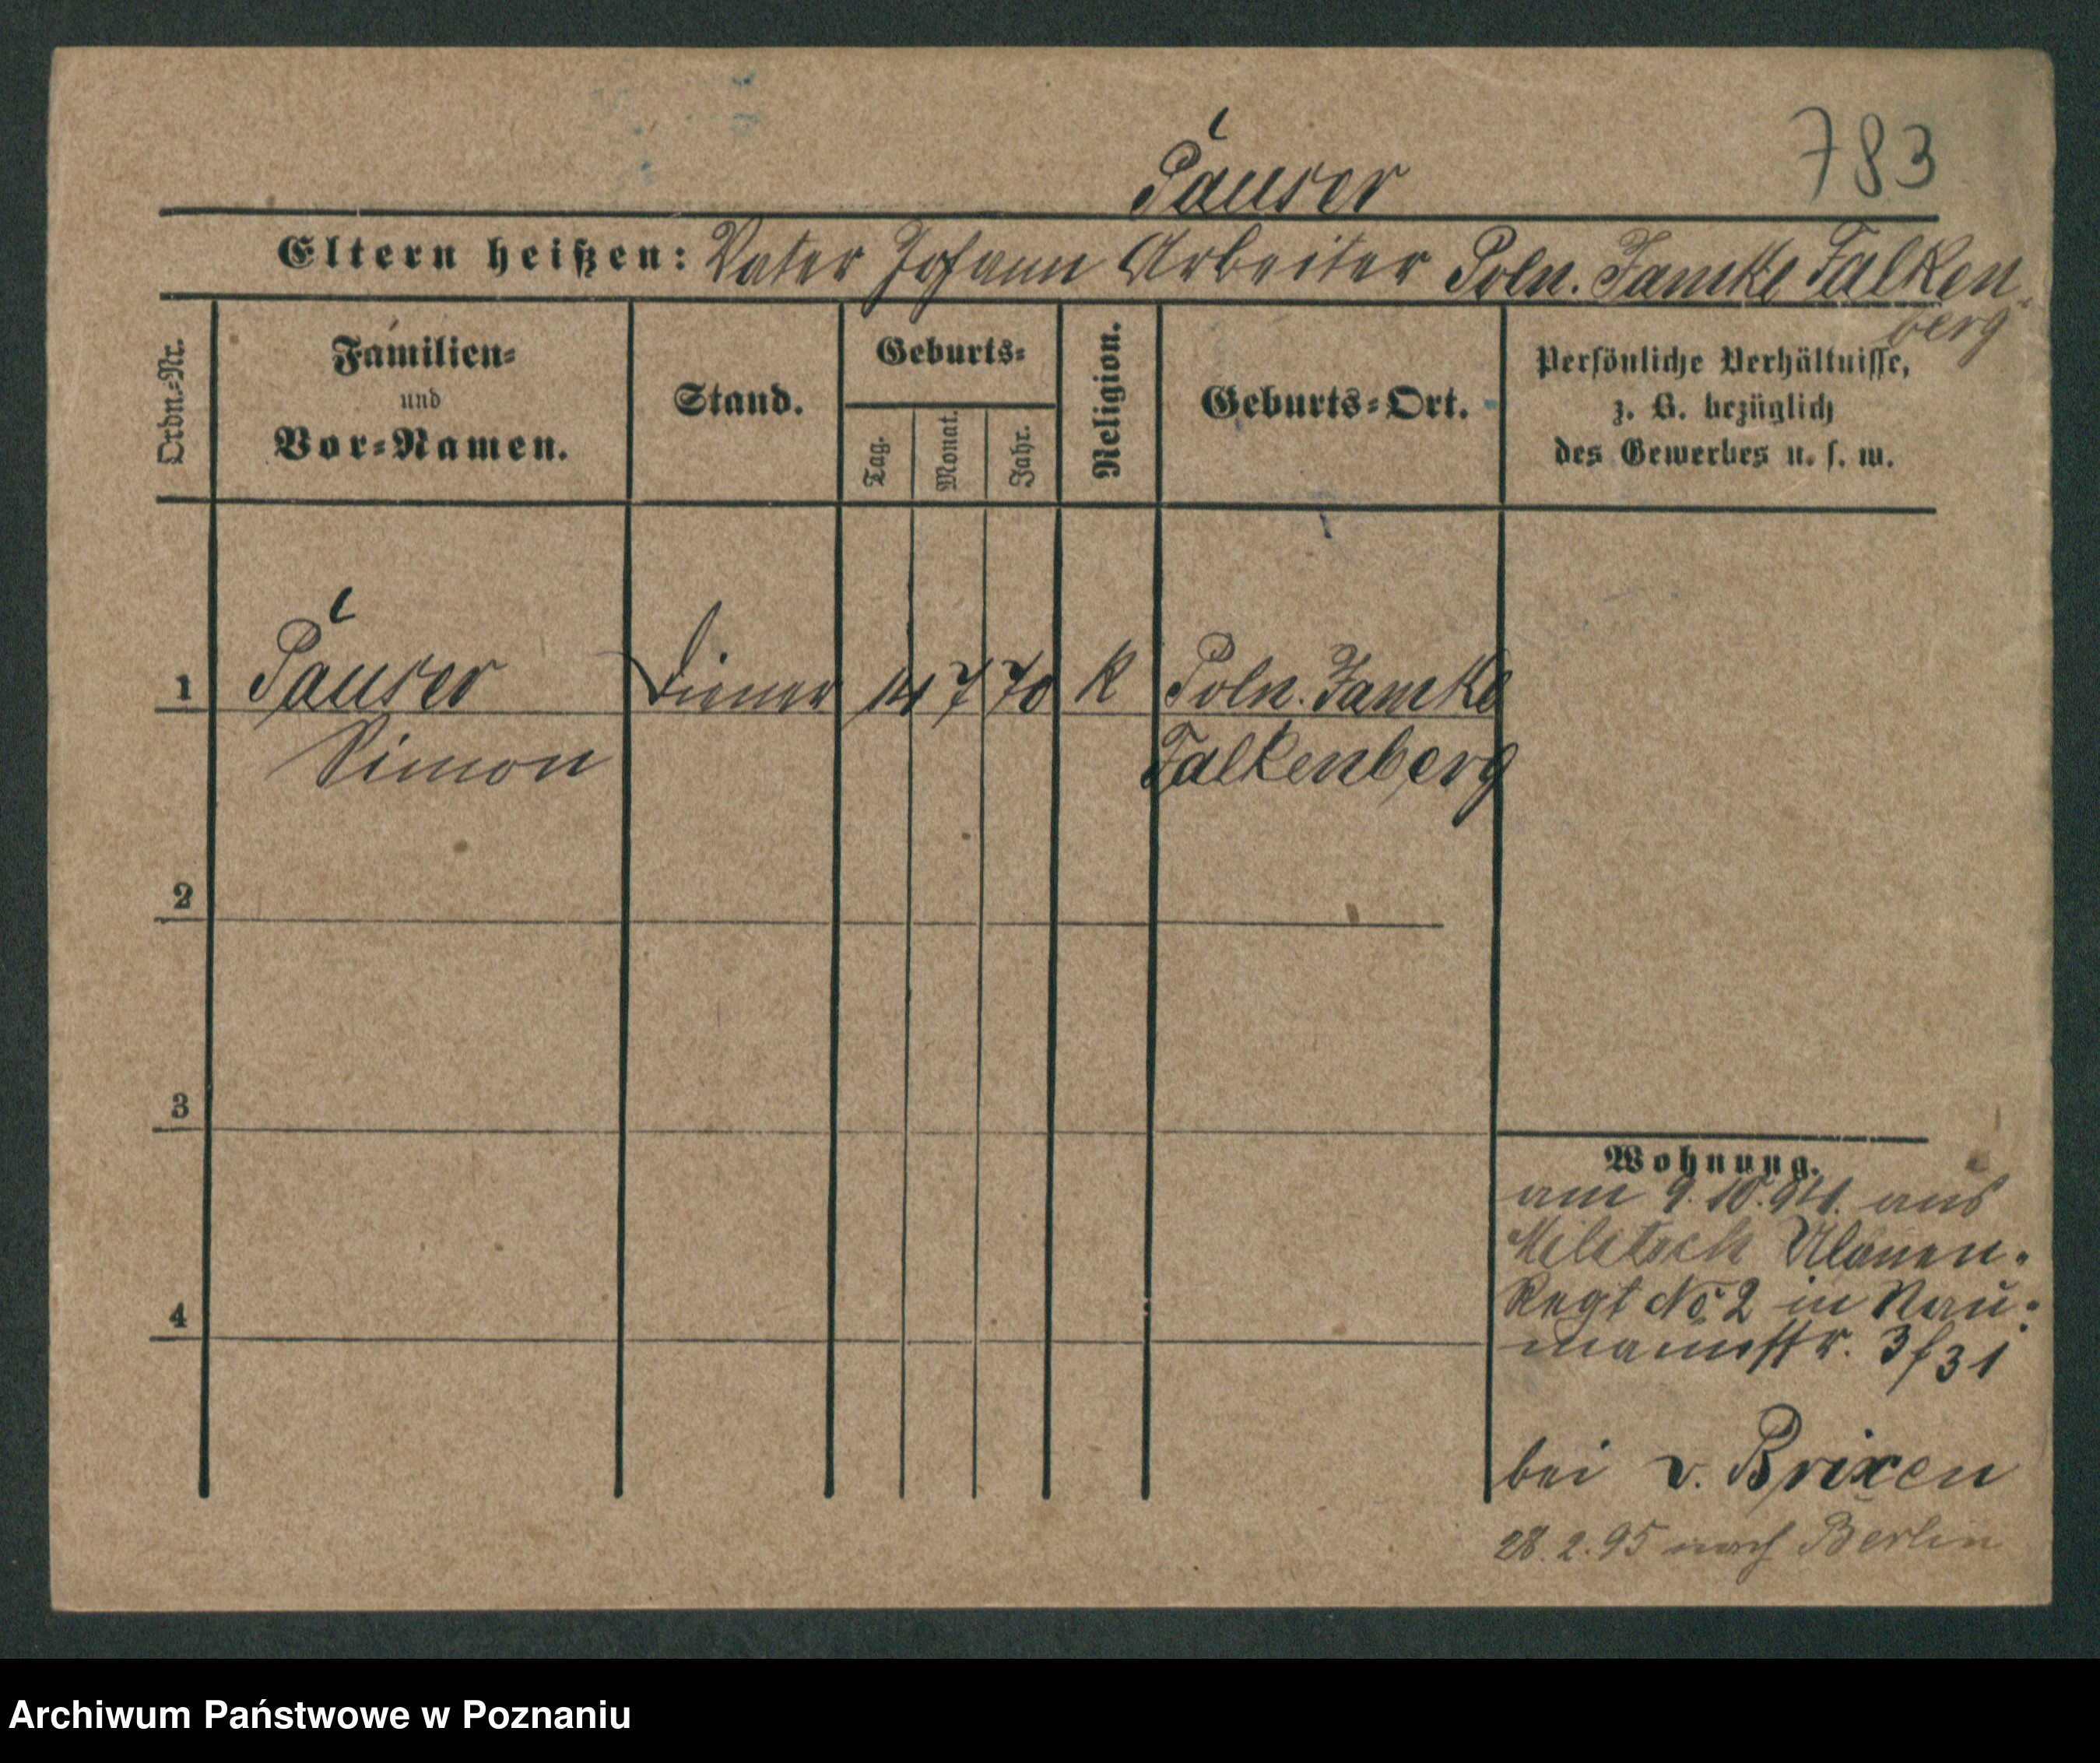 783
Päuser
Eltern heißen: Vater Johann Arbeiter Poln. Jamke Falken
berg
Ordn.=Nr.
Familien=
und
Vor=Namen.
Stand.
Geburts=
Tag.
Monat.
Jahr.
Religion.
Geburts=Ort.
Persönliche Verhältnisse,
z. B. bezüglich
des Gewerbes u. s. w.
1 Päuser Diener 14 7 70 K Poln. Jamke
Simon Falkenberg
2
3
4
Wohnung.
am 9. 10. 94. aus
Militsch Ulanen-
Regt No 2 in Nau=
mannstr. 3/31
bei v. Brixen
28. 2. 95 nach Berlin
Archiwum Państwowe w Poznaniu